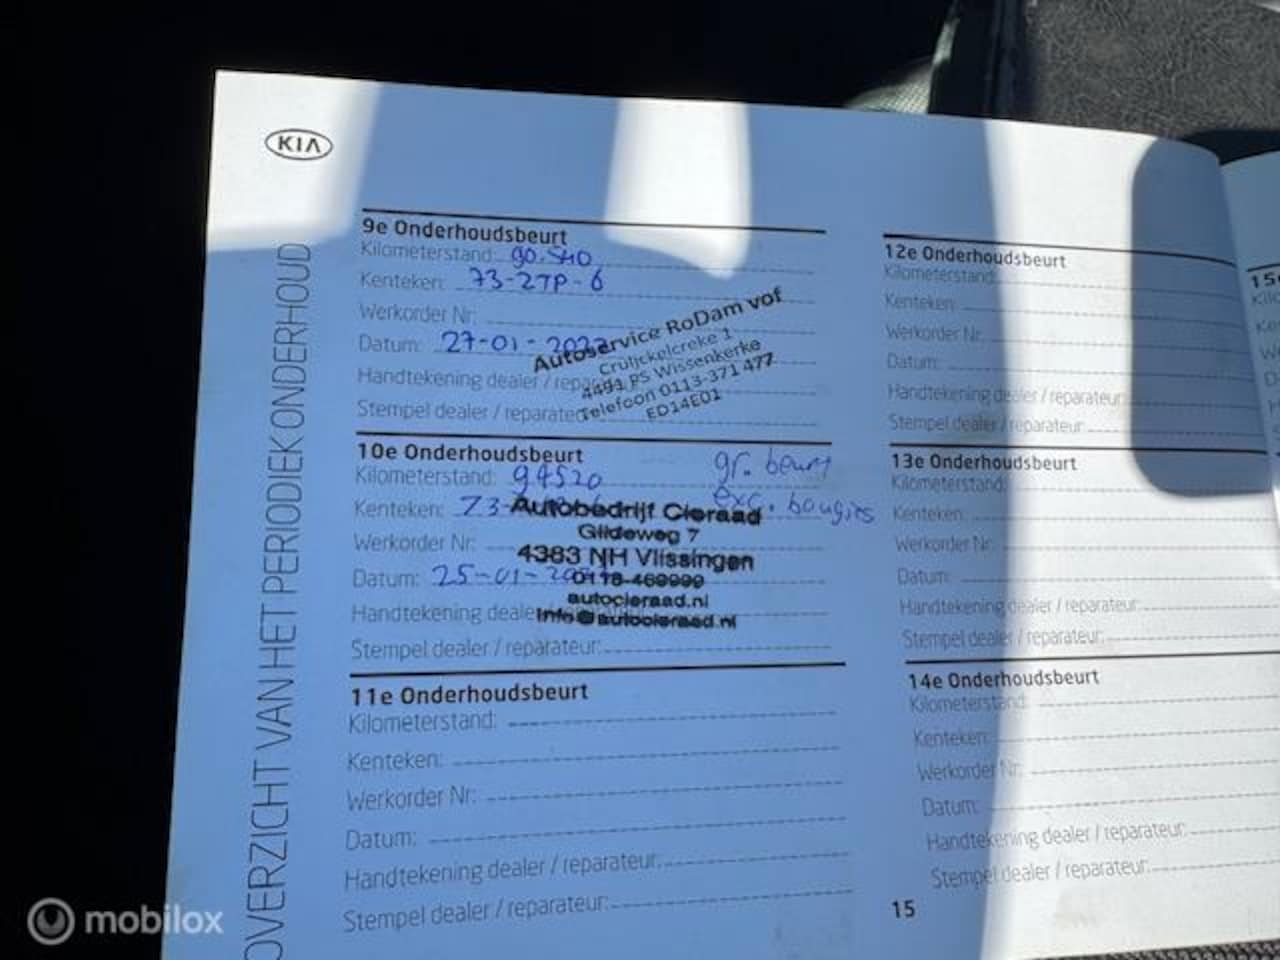 KIA
OVERZICHT VAN HET PERIODIEK ONDERHOUD
9e Onderhoudsbeurt
Kilometerstand: 90.540
Kenteken: 73-ZTP-6
Werkorder Nr:
Datum: 27-01-
Handtekening dealer / repa
Stempel dealer / reparateu
Autoservice RoDam vof
Cruijckelcreke 1
4491 PS Wissenkerke
Telefoon 0113-371 477
ED14E01
10e Onderhoudsbeurt
gr. beurt
exc. bougies
Kilometerstand: 94520
Kenteken: 73-
Werkorder Nr:
Datum: 25-01-
Handtekening deale
Stempel dealer / reparateur:
Autobedrijf Cieraad
Gildeweg 7
4383 NH Vlissingen
0118-469999
autocieraad.nl
info@autocieraad.nl
11e Onderhoudsbeurt
Kilometerstand:
Kenteken:
Werkorder Nr:
Datum:
Handtekening dealer / reparateur:
Stempel dealer / reparateur:
12e Onderhoudsbeurt
Kilometerstand:
Kenteken:
Werkorder Nr:
Datum:
Handtekening dealer / reparateur:
Stempel dealer / reparateur:
13e Onderhoudsbeurt
Kilometerstand:
Kenteken:
Werkorder Nr:
Datum:
Handtekening dealer / reparateur:
Stempel dealer / reparateur:
14e Onderhoudsbeurt
Kilometerstand:
Kenteken:
Werkorder Nr:
Datum:
Handtekening dealer / reparateur:
Stempel dealer / reparateur:
15
15e
mobilox